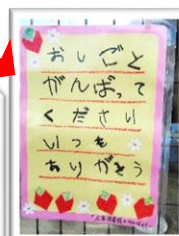 おしごと
がんばって
ください
いつも
ありがとう